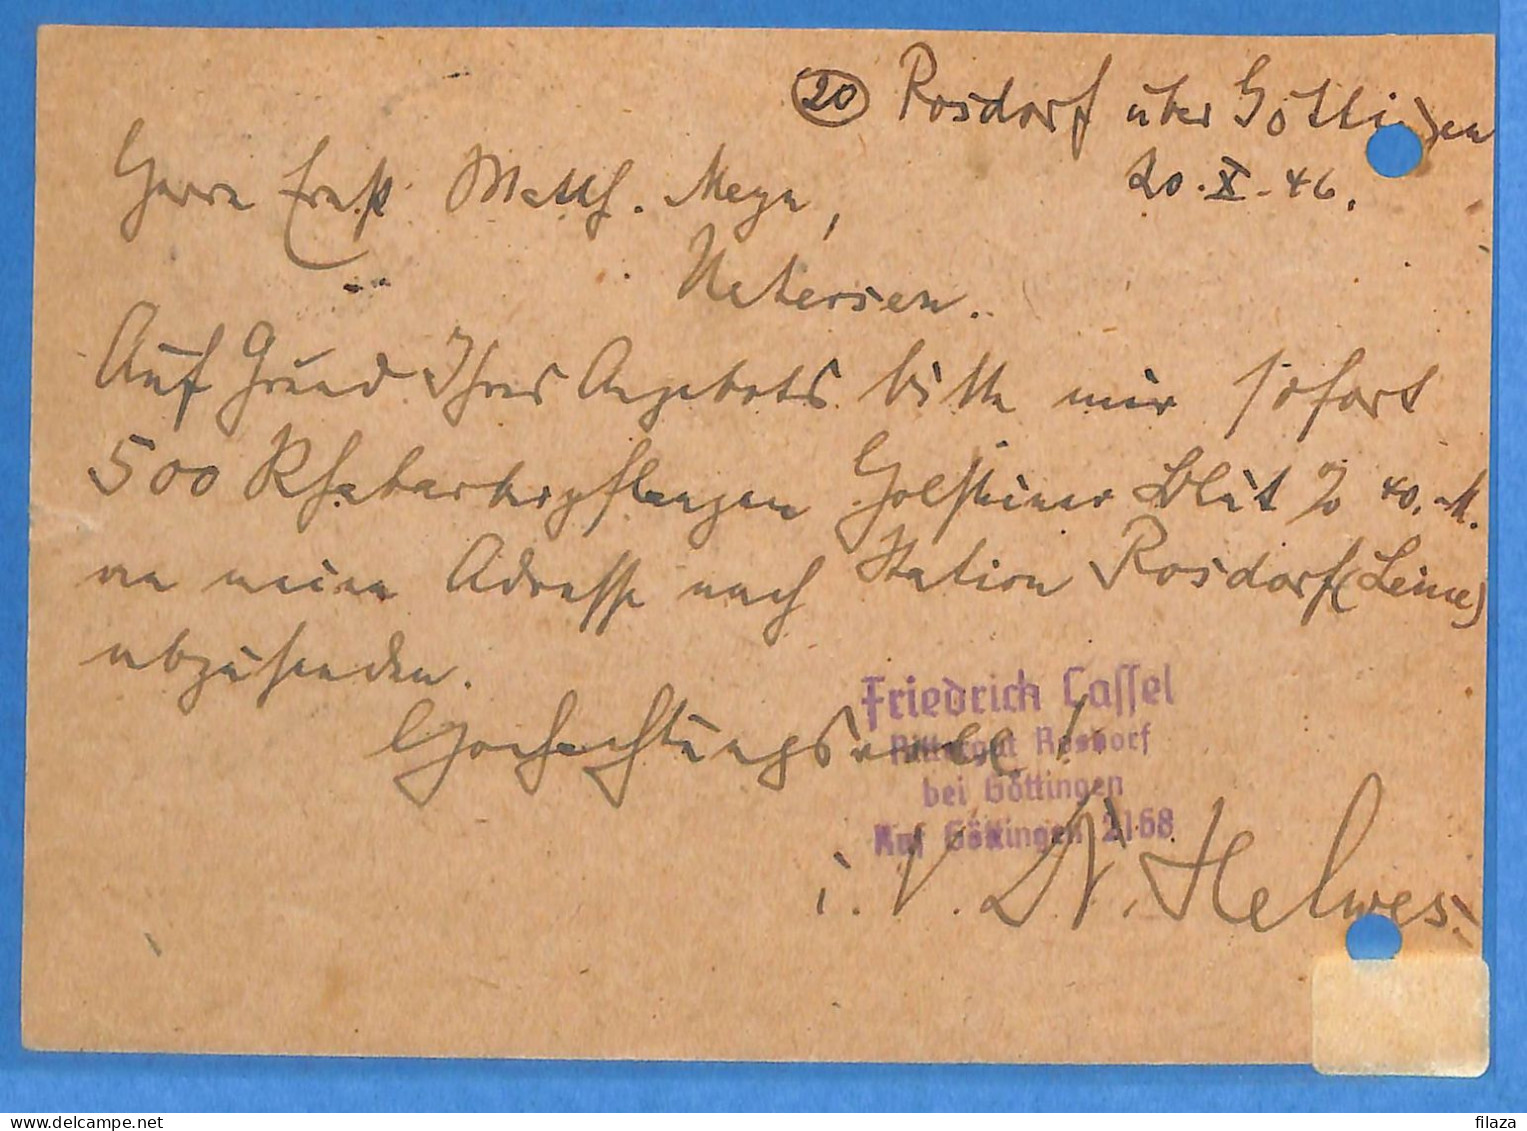 (20) Rosdorf über Göttingen
20.X.46.
Herrn Ernst Matth. Meyn,
Uetersen.
Auf Grund Ihres Angebots bitte mir sofort
500 Rhabarberpflanzen Holsteiner Blut % 40.-M.
an meine Adresse nach Station Rosdorf (Leine)
abzusenden.
Hochachtungsvoll!
Friedrich Cassel
Rittergut Rosdorf
bei Göttingen
Ruf Göttingen 2168
i. V. Dr. Helwes.
filaza